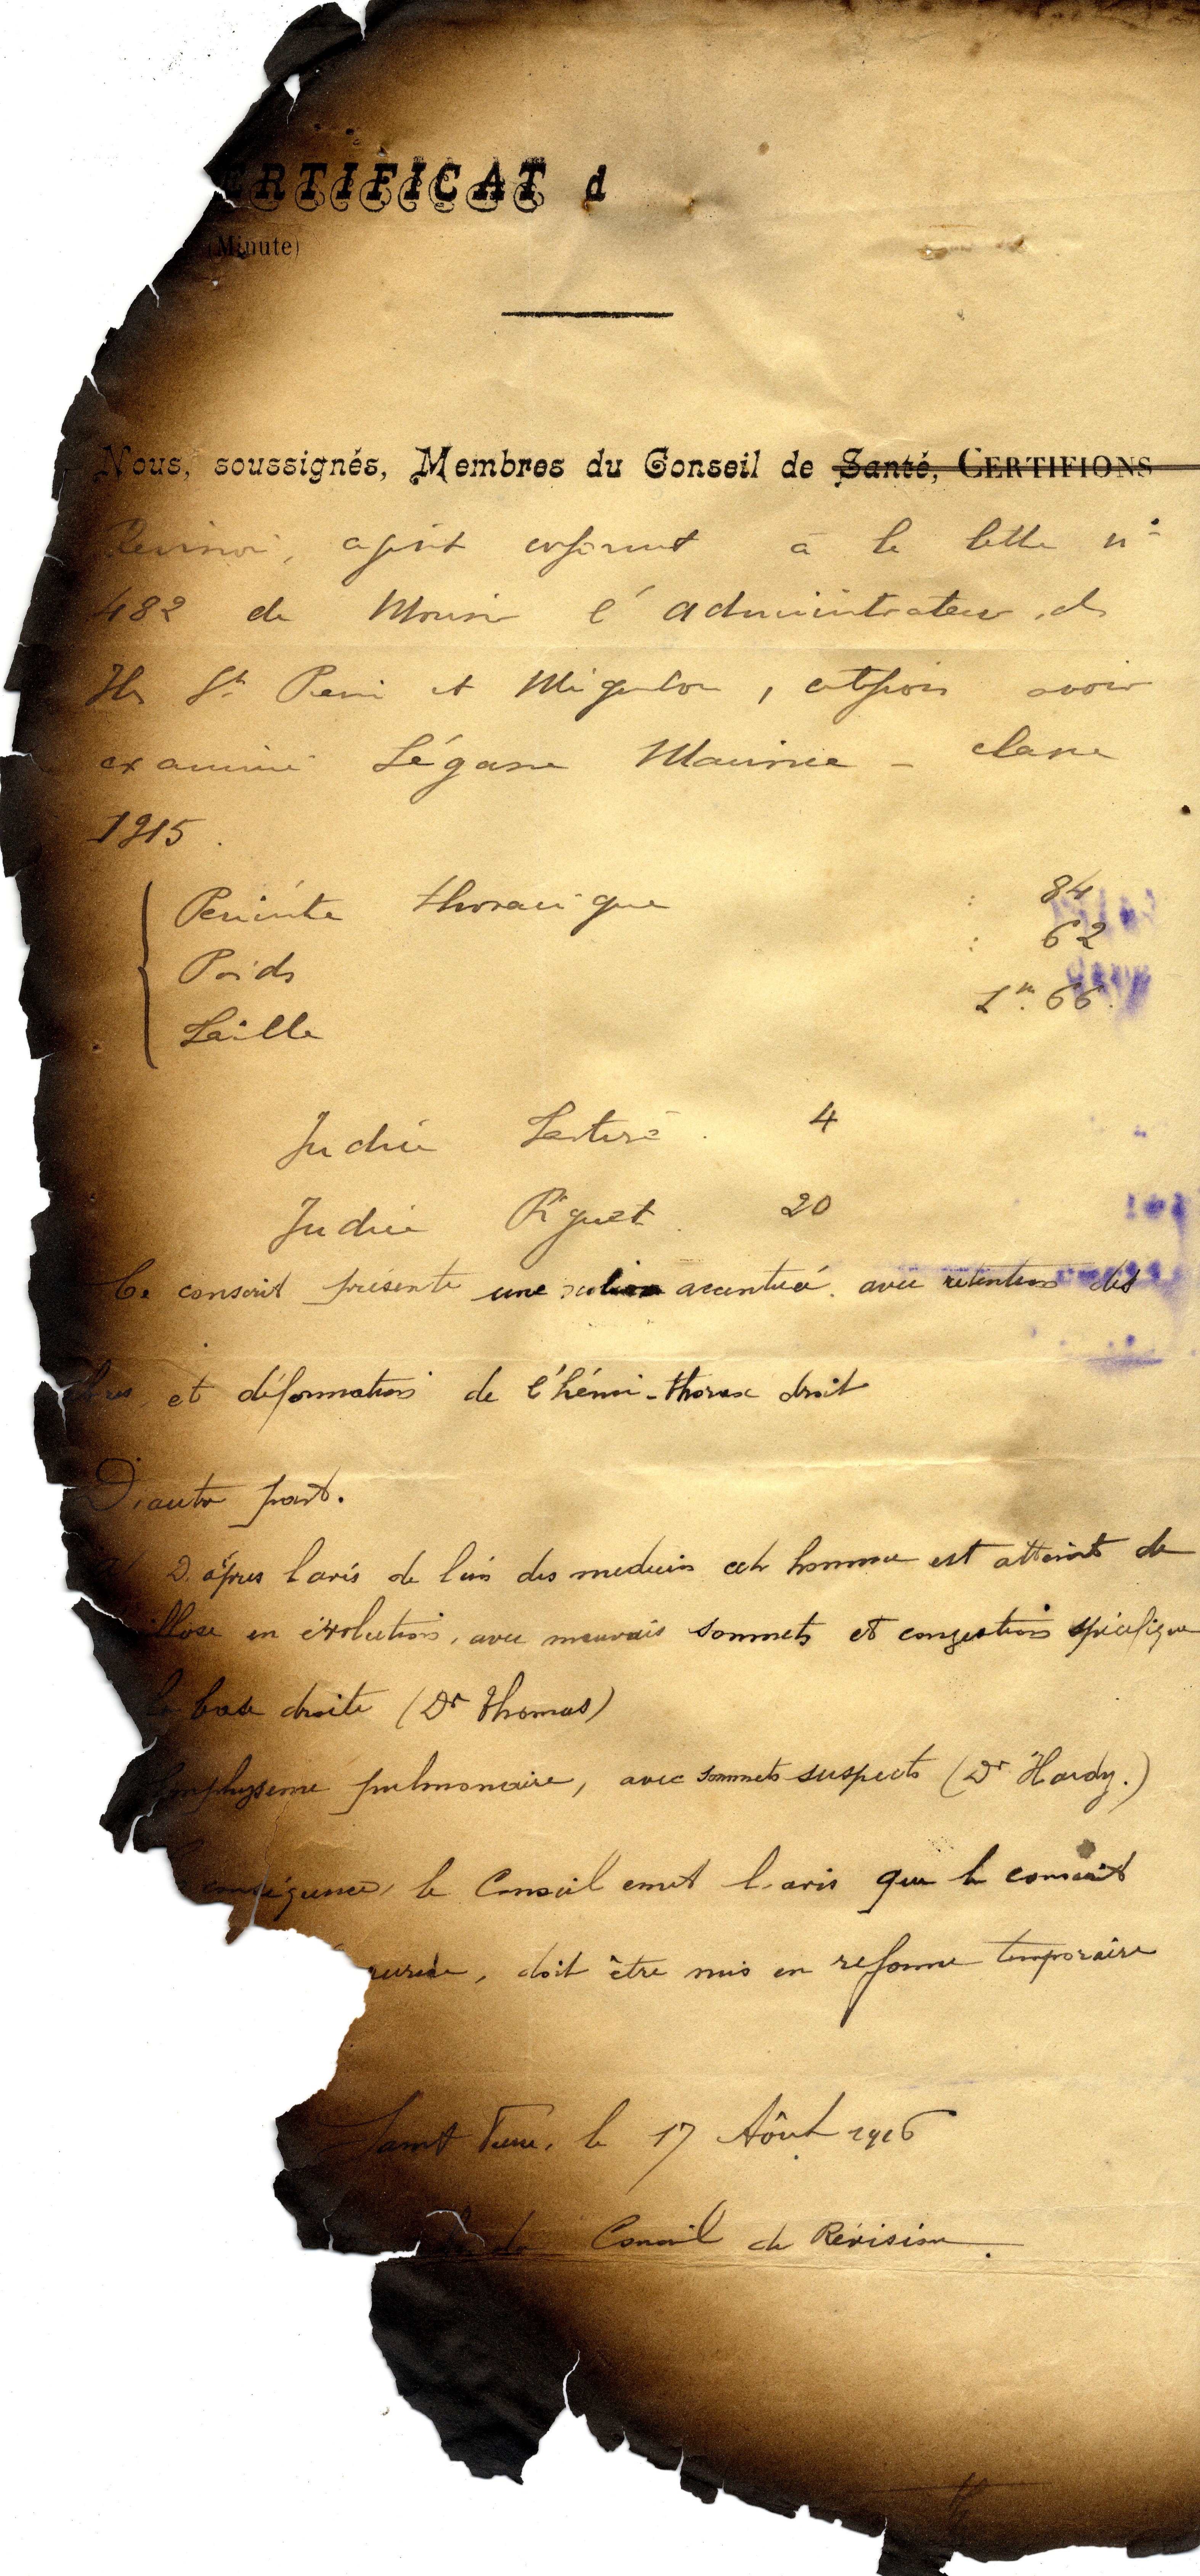 ERTIFICAT d
(Minute)
Nous, soussignés, Membres du Conseil de Santé, CERTIFIONS
à la lettre n°
482 de l'administrateur des
Iles St Pierre et Miquelon, avoir
examiné Légasse Maurice - classe
1915.
Périmètre thoracique : 84
Poids : 62
Taille 1m.66.
Indice 4
Indice Piguet 20
Ce conscrit présente une accentuée. avec rétention des
et déformation de l'hémi-thorax droit
D'autre part.
D'après l'avis de l'un des medecins cet homme est atteint de
illose en évolution, avec mauvais sommets et congestion spécifique
la base droite (Dr Thomas)
Emphysème pulmonaire, avec sommets suspects (Dr Hardy.)
conséquence, le Conseil emet l'avis que le conscrit
, doit être mis en reforme temporaire
Saint Pierre, le 17 Août 1916
du Conseil de Révision.